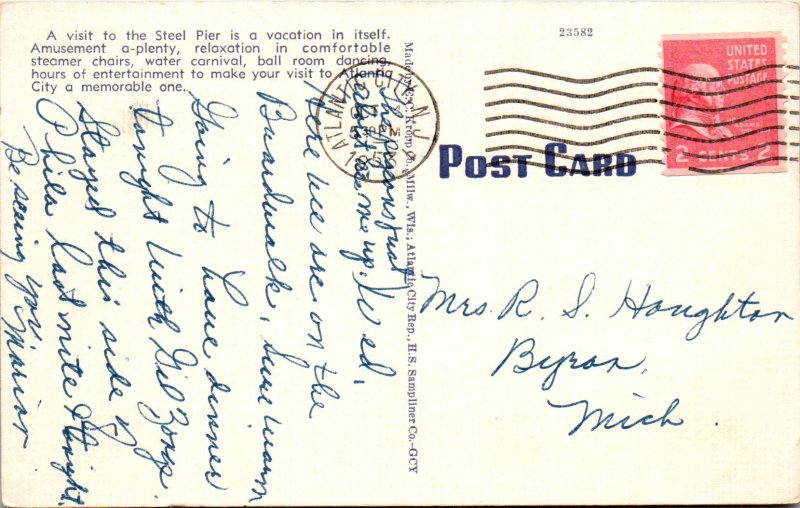 A visit to the Steel Pier is a vacation in itself.
Amusement a-plenty, relaxation in comfortable
steamer chairs, water carnival, ball room dancing,
hours of entertainment to make your visit to Atlantic
City a memorable one.
23582
Made by E. C. Kropp Co., Milw., Wis.; Atlantic City Rep., H.S. Sampliner Co.-GCY
ATLANTIC CITY N.J.
530PM
UNITED
STATES
POSTAGE
2 CENTS 2
POST CARD
me up. Wed.
Here we are on the
Boardwalk, Sure warm
Going to have dinner
tonight with Gil
Stayed this side of
Phila last nite & tonight.
Be seeing you
Marion
Mrs. R. S. Houghton
Byron,
Mich